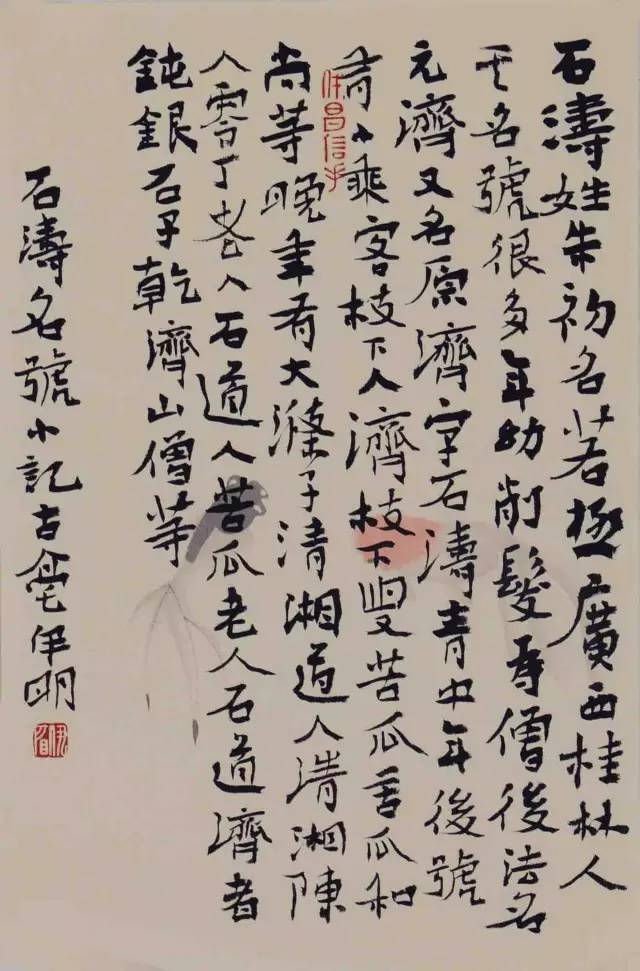 石濤姓朱初名若極廣西桂林人
其名號很多年幼削髮爲僧後法名
元濟又名原濟字石濤青中年後號
有小乘客枝下人濟枝下叟苦瓜苦瓜和
尚等晚年有大滌子清湘道人清湘陳
人零丁老人石道人苦瓜老人石道濟者
鈍銀石子乾濟山僧等
石濤名號小記古亳伊明